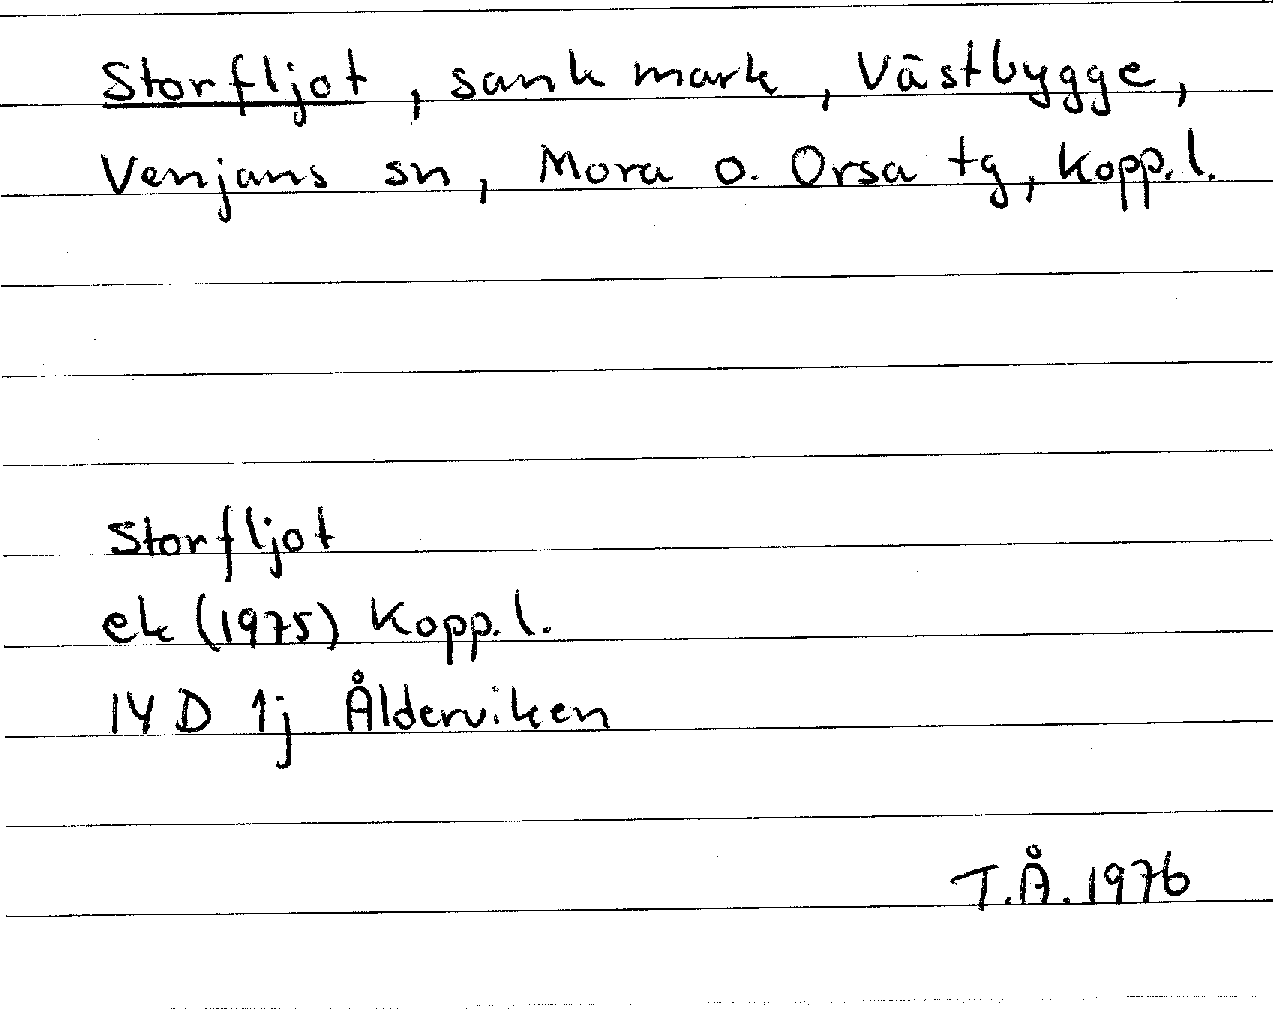 Storfljot, sank mark, Västbygge,
Venjans sn, Mora o. Orsa tg, Kopp.l.
Storfljot
ek (1975) Kopp.l.
14 D 1j Ålderviken
T.Å. 1976